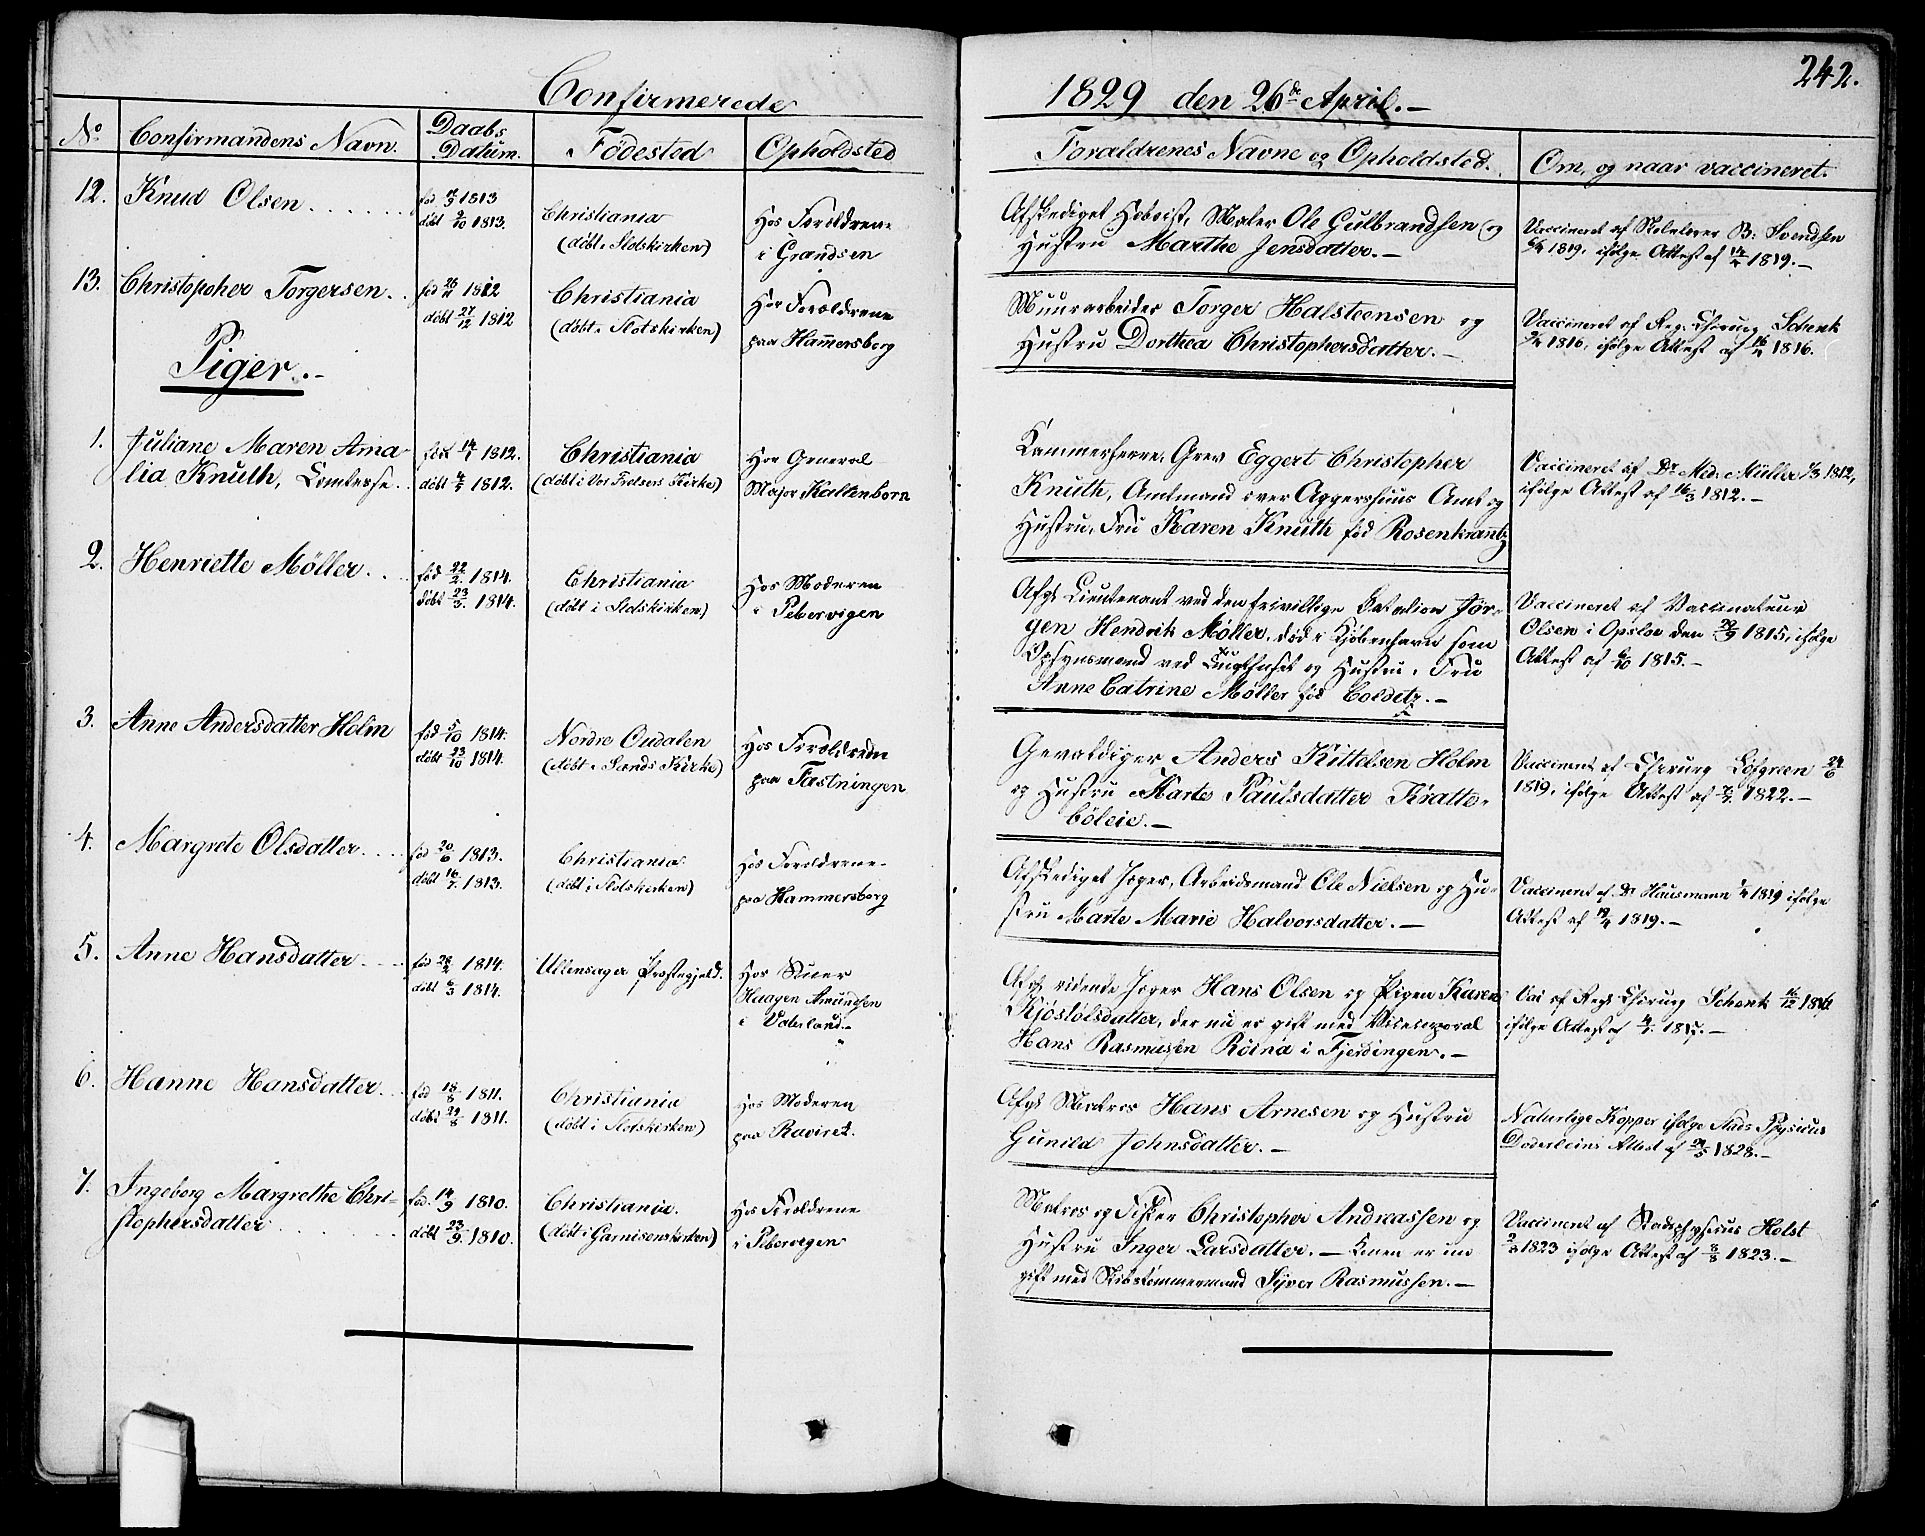 242.
Confirmerede
1829 den 26de April.
No Confirmandens Navn. Daabs Datum. Födested Opholdsted
Foraldrenes Navne og Opholdsted. Om, og naar vaccineret.
12. Knud Olsen
1813
döbt 9/10 1813.
Christiania
(döbt i Slotskirken)
Hos Forældrene
i Grændsen
Afskediget Hoboist, Maler Ole Gulbrandsen og
Hustru Marthe Jensdatter.
Vaccineret af Skolelærer B: Svendsen
1819, ifølge Attest af 1819.
13. Christopoher Torgersen
fød 26/11 1812
döbt 27/12 1812
Christiania
(döbt i Slotskirken)
Hos Forældrene
paa Ham̄ersborg
Muurarbeider Torger Halsteensen og
Hustru Dorthea Christophersdatter.
Vaccineret af Reg. Chirurg Schenk
1816, ifølge Attest af 1816.
Piger.
1. Juliane Maren Ama-
lia Knuth, Comtesse
fød 14/1 1812.
döbt 1812.
Christiania
(döbt i Vor Frelsers Kirke)
Hos General
Major Kaltenborn
Kammerherre, Grev Eggert Christopher
Knuth, Amtmand over Aggershuus Amt og
Hustru, Fru Karen Knuth fød Rosenkrantz
Vaccineret af Dr. Med. Müller 1812,
ifølge Attest af 16/3 1812.
2. Henriette Möller
fød 22/2 1814.
döbt 23/3 1814.
Christiania
(döbt i Slotskirken)
Hos Moderen
i Pebervigen
Afg. Lieutenant ved den frivillige Batalion Jör-
gen Hendrik Möller, død i Kjøbenhavn som
Opsynsmand ved Tugthuset og Hustru, Fru
Anne Catrine Möller fød Colditz.
Vaccineret af Vaccinateur
Olsen i Opsloe den 29/9 1815, ifølge
Attest af 6/10 1815.
3. Anne Andersdatter Holm
fød 5/10 1814.
döbt 23/10 1814.
Nordre Oudalen
(döbt i Sands Kirke)
Hos Forældrene
paa Fæstningen
Gevaldiger Anders Kittelsen Holm
og Hustru Marte Paulsdatter Kratte-
böleie.
Vaccineret af Chirurg Löfgreen 24/6
1819, ifølge Attest af 1822.
4. Margrete Olsdatter
fød 20/6 1813.
döbt 16/7 1813.
Christiania
(döbt i Slotskirken)
Hos Forældrene
paa Hammersborg
Afskediget Jæger, Arbeidsmand Ole Nielsen og Hu-
stru Marte Marie Halvorsdatter.
Vaccineret af Dr Hausmann 1819 ifølge
Attest af 19/4 1819.
5. Anne Hansdatter
fød 28/2 1814.
döbt 6/3 1814.
Ullensager Præstegjeld.
Hos
Haagen Amundsen
i Vaterland
Afg. ridende Jæger Hans Olsen og Pigen Karen
Kjöstolsdatter, der nu er gift med Vicecorporal
Hans Rasmussen Röina i Fjerdingen.
Vac af Reg Chirurg Schenk 16/12 1816
ifølge Attest af
6. Hanne Hansdatter
fød 18/8 1811.
döbt 29/8 1811.
Christiania
(döbt i Slotskirken)
Hos Moderen
paa Raviret.
Afg. Matros Hans Arnesen og Hustru
Gunild Johnsdatter.
Naturlige Kopper ifølge Stads Physicus
Doderleins Attest af 1828.
7. Ingeborg Margrethe Chri-
stophersdatter
fød. 14/9 1810.
döbt 23/9 1810.
Christiania.
(döbt i Garnisonskirken)
Hos Forældrene
i Pebervigen
Matros og Fisker Christopher Andreassen og
Hustru Inger Larsdatter. Konen er nu
gift med Skibstømmermand Syver Rasmussen.
Vaccineret af Stadsphysicus Holst
1823 ifølge Attest af 8/8 1823.